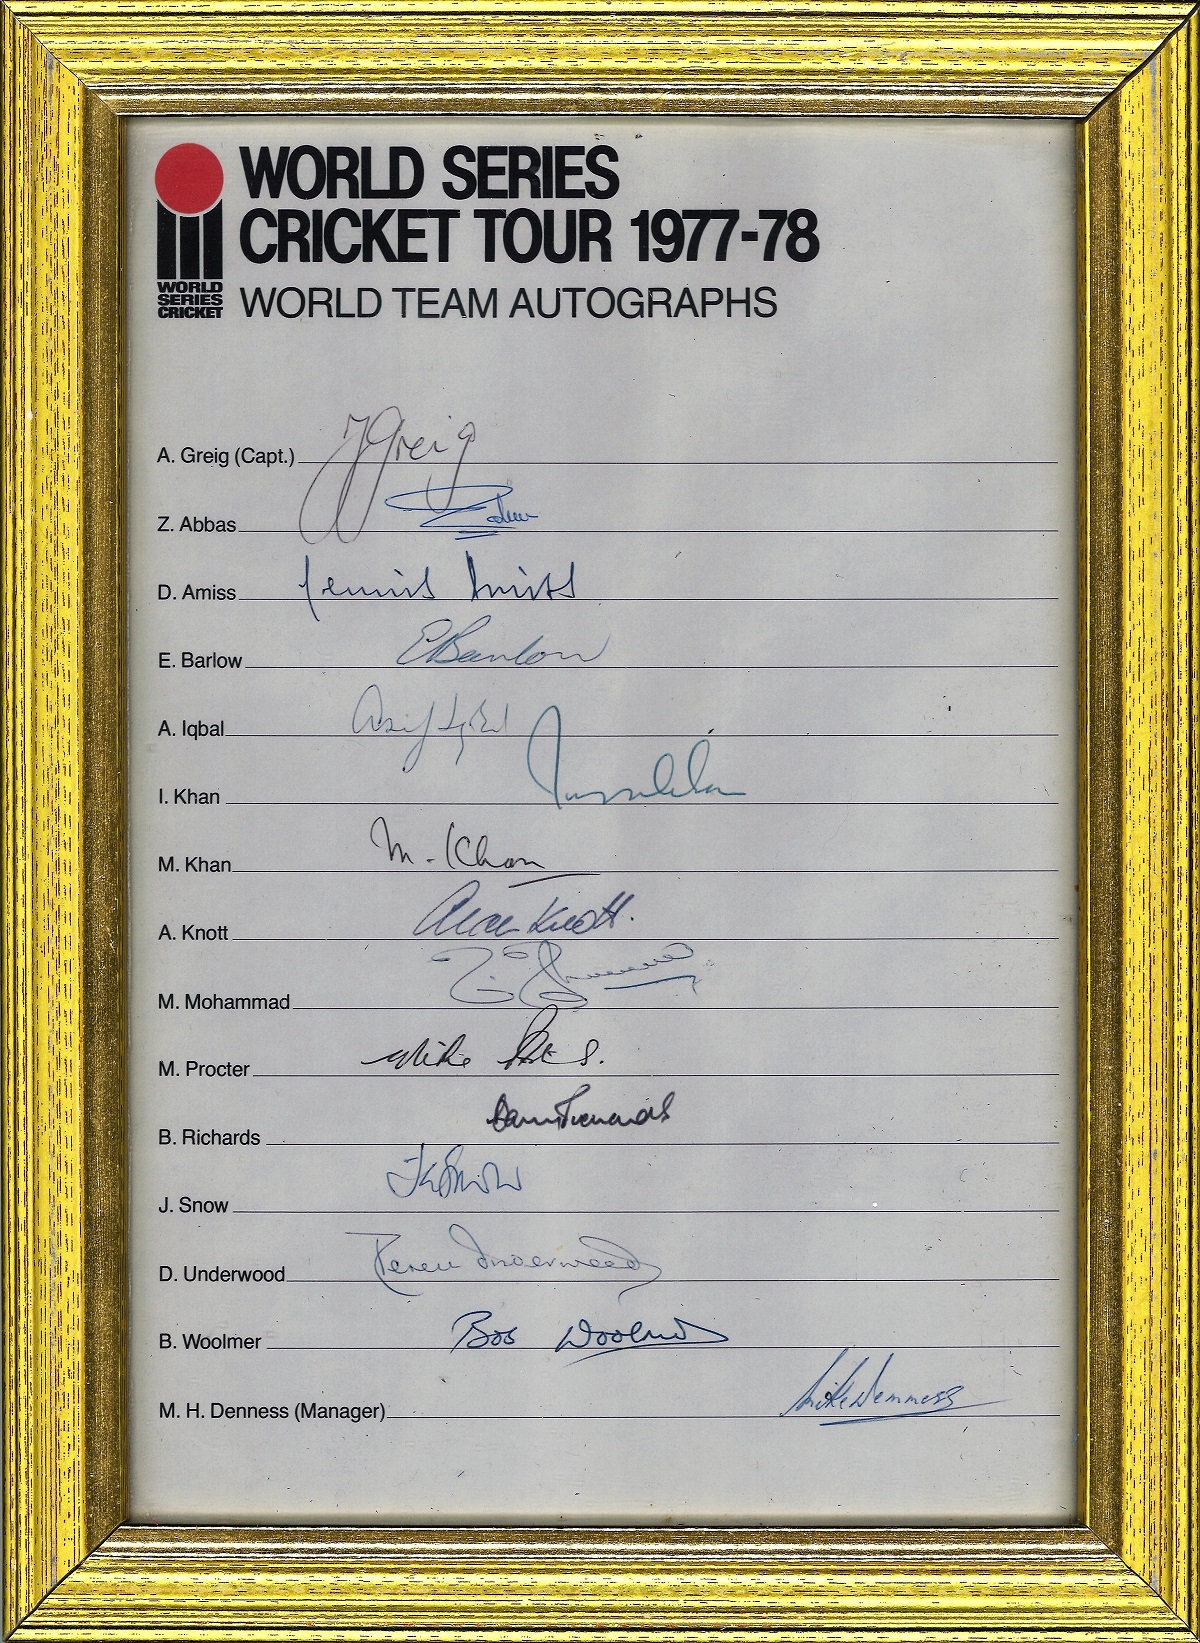 WORLD SERIES
CRICKET TOUR 1977-78
WORLD
SERIES
CRICKET
WORLD TEAM AUTOGRAPHS
A. Greig (Capt.) Greig
Z. Abbas
D. Amiss Dennis Amiss
E. Barlow E Barlow
A. Iqbal Asif Iqbal
I. Khan
M. Khan M. Khan
A. Knott Alan Knott.
M. Mohammad
M. Procter Mike
B. Richards
J. Snow Snow
D. Underwood Derek Underwood
B. Woolmer Bob Woolmer
M. H. Denness (Manager) Mike Denness